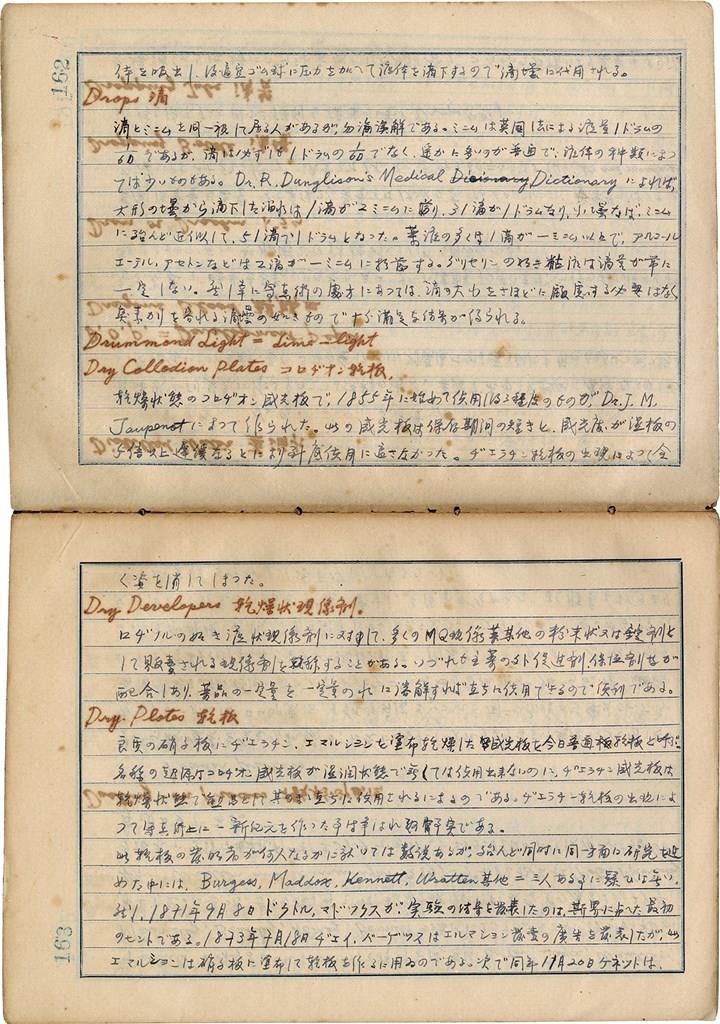 162
体を吸出し、後適宜ゴム球に圧力を加へて液体を滴下するので滴壜に代用される。
Drops 滴
滴とミニムを同一視して居る人があるが、勿論誤解である。ミニムは英国法による液量1ドラムの
1/60であるが、滴は必ずしも1ドラムの1/60でなく、遙かに多いのが普通で、液体の種類によつ
ては少いのもある。Dr. R. Dunglison's Medical Dictionary によれば、
大形の壜から滴下した溜水は1滴が2ミニムに當り、31滴が1ドラムなり、小壜なれば、ミニム
に殆んど近似して、51滴で1ドラムとなつた。薬液の多くは1滴が一ミニム以上で、アルコール
エーテル、アセトンなどは2滴が一ミニムに相当する。グリセリンの如き粘液は滴量が常に
一定しない。幸に写真術の處方にあつては、滴の大小をさほどに顧慮する必要はなく
の如きもので十分満足な結果が得られる。
Drummond Light = Lime-light
Dry Collodion Plates コロヂオン乾板.
乾燥状態のコロヂオン感光板で、1855年に始めて使用し得る程度のものが、Dr. J. M.
Taupenot によつて作られた。此の感光板は保存期間の短きと、感光度が湿板の
5倍以上遅緩なるとにより斗底使用に適さなかつた。ヂエラチン乾板の出現によつて全
163
く姿を消してしまつた。
Dry Developers 乾燥状現像剤.
ロヂナルの如き液状現像剤に対して、多くのMQ現像薬其他の粉末状又は錠剤と
して販売される現像剤を称することがある。いづれも主薬の外促進剤、保恒剤などが
配合しあり、薬品の一定量を一定量の水に溶解すれば直ちに使用できるので便利である。
Dry Plates 乾板
良質の硝子板にヂエラチン、エマルションを塗布乾燥した感光板を今日普通板乾板と呼ぶ。
名称のコロヂオン感光板が湿潤状態で無くては使用出来ないのに、ヂエラチン感光板は
乾燥状態で直ちに使用されるによるのである。ヂエラチン乾板の出現によ
つて写真術上に一新紀元を作つた事は争はれぬ事実である。
此乾板の発明者が何人なるかに就いては数説あるが、殆んど同時に同一方面に研究を進
めた中には、Burgess, Maddox, Kennett, Wratten 其他二三人ある事に疑ひはない。
1871年9月8日ドクトル、マドックスが、実験の結果を発表したのは、斯界に点へた最初
のヒントである。1873年7月18日ヂエイ、バーゲツスはエルマション発売の広告を発表したが、此
エマルションは硝子板に塗布して乾板を作るに用ゐのである。次で同年11月20日ケネットは、